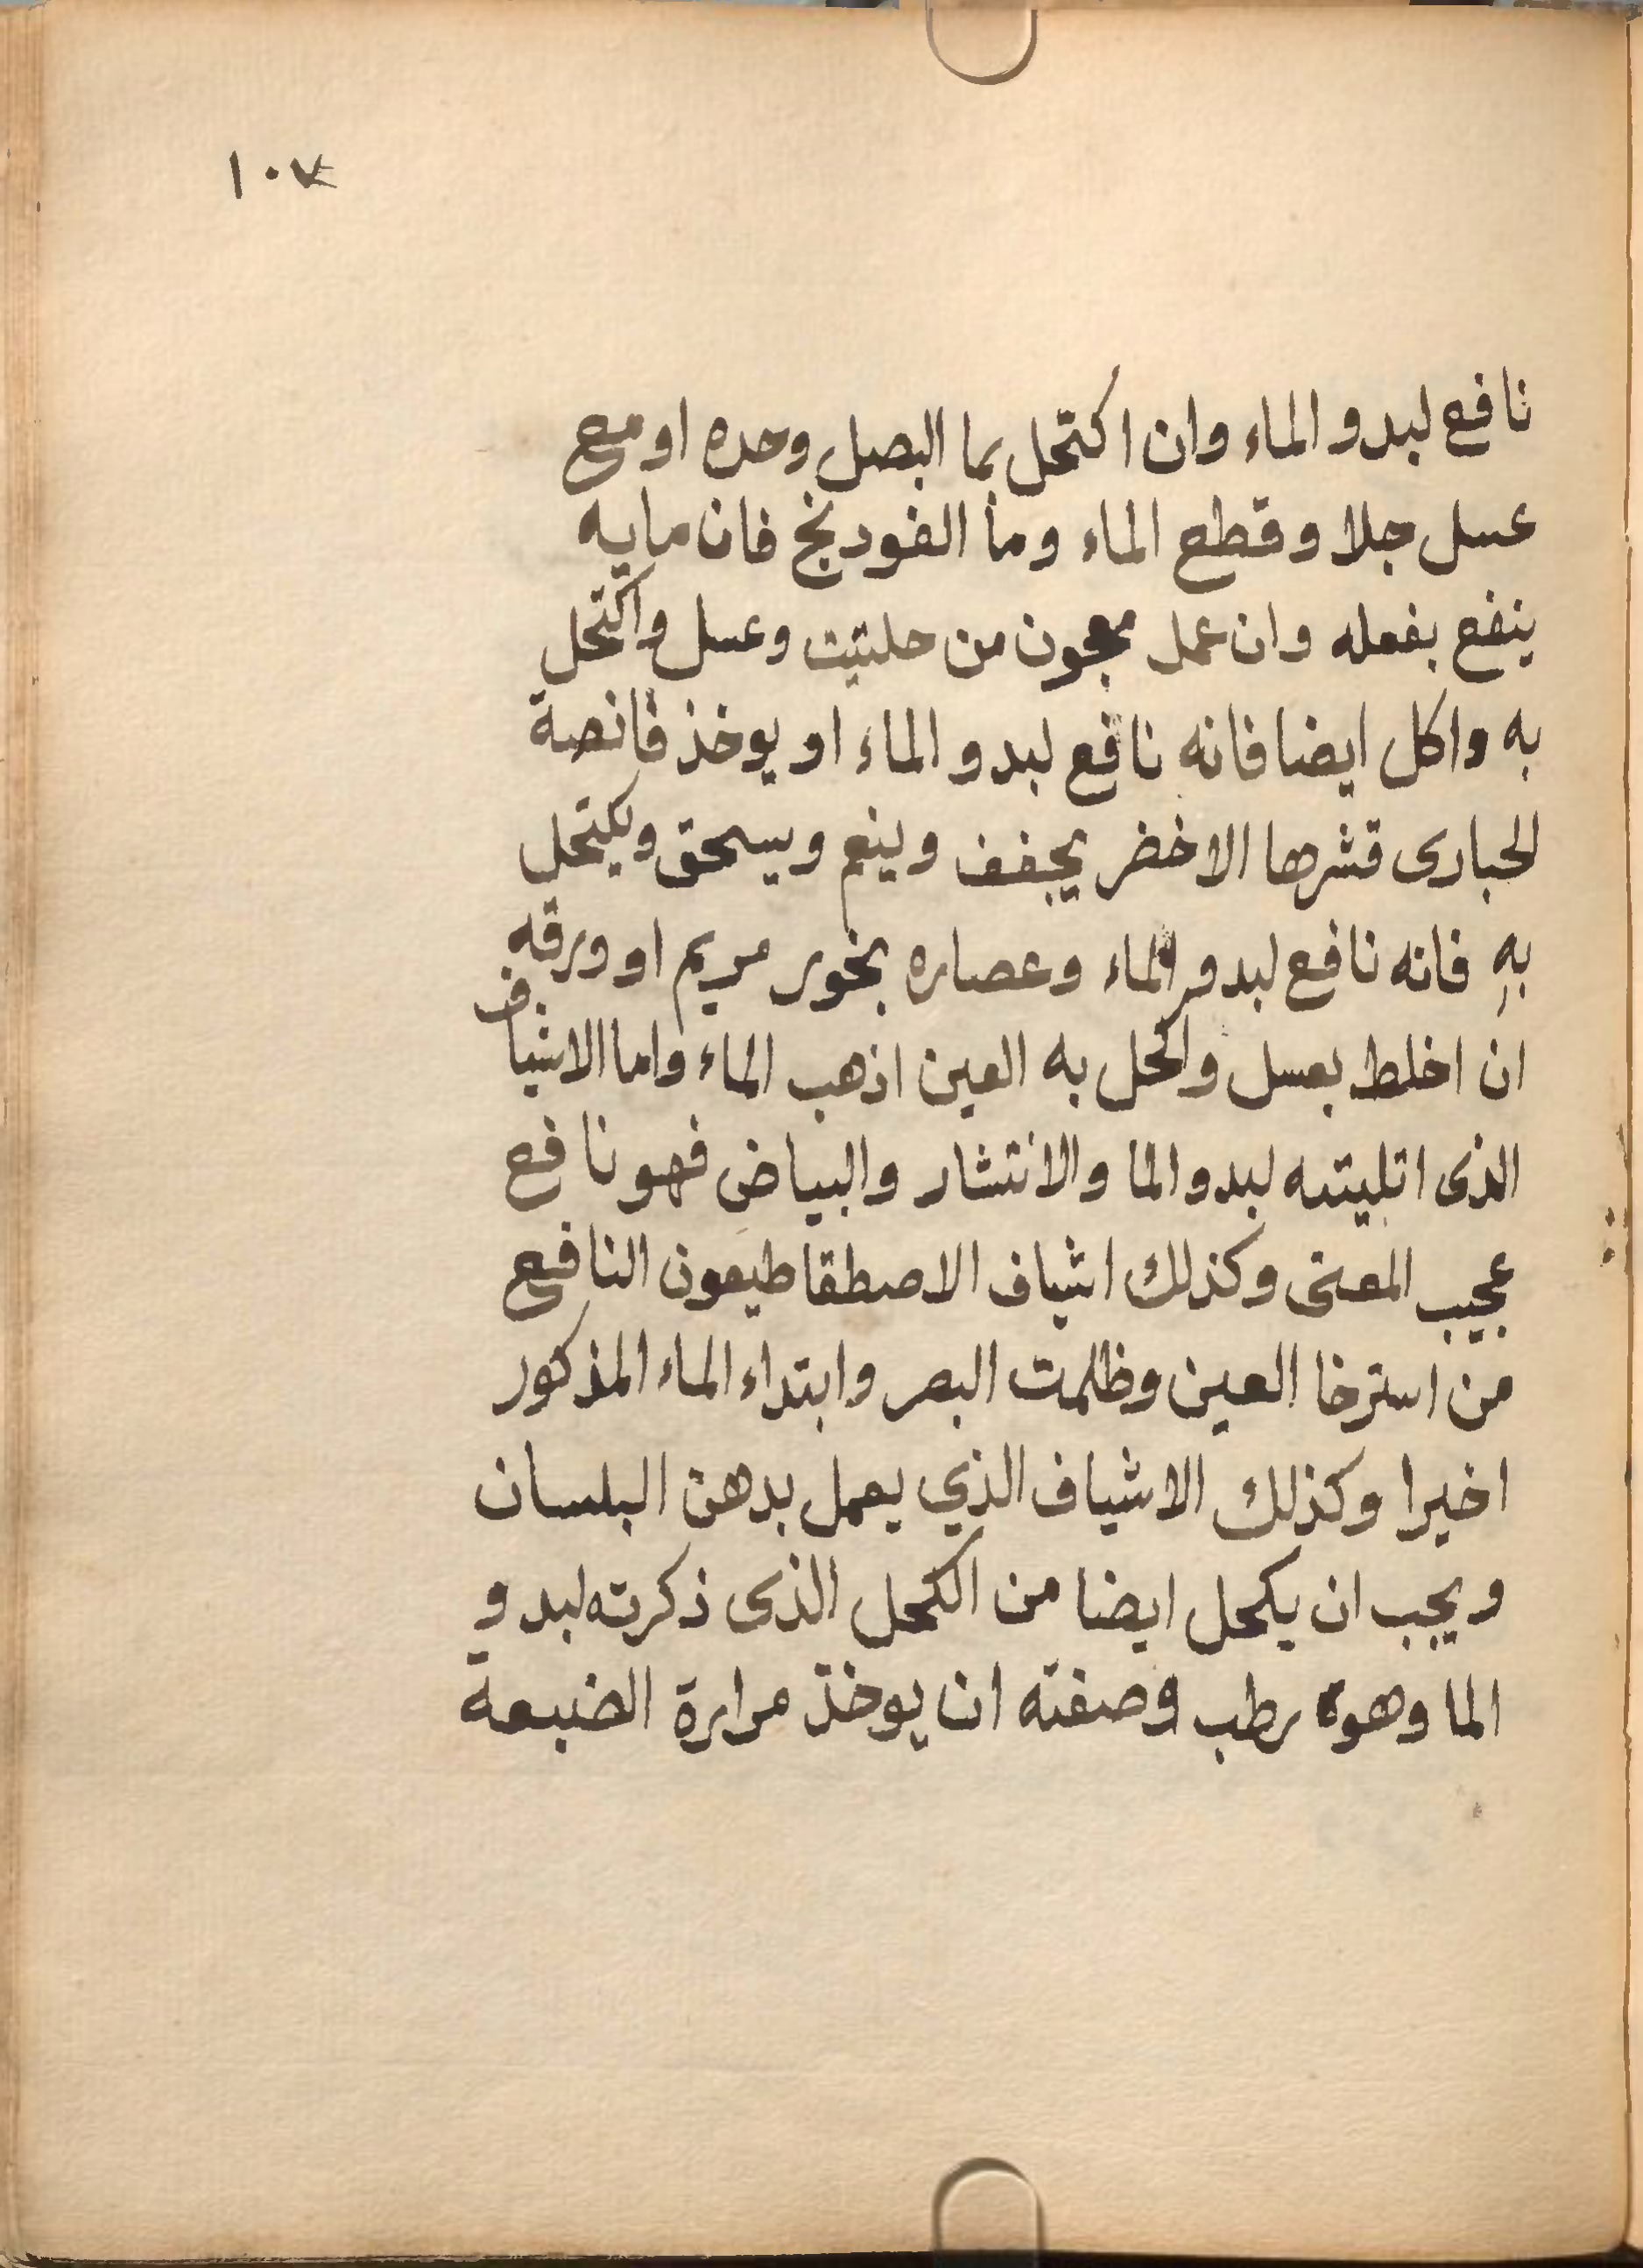 ١٠٧
نافع لبدو الماء وان اكتحل بما البصل وحده او مع
عسل جلا وقطع الماء وما الفودنج فان مايه
ينفع بفعله وان عمل معجون من حلتيت وعسل واكتحل
به واكل ايضا فانه نافع لبدو الماء او يوخذ قانصة
الحبارى قشرها الاخضر يجفف وينعم ويسحق ويكتحل
به فانه نافع لبدو الماء وعصاره بخور مريم او ورقه
ان اخلط بعسل واكحل به العين اذهب الماء واما الاشياف
الذى اتليته لبدو الما والانتشار والبياض فهو نافع
عجيب المعنى وكذلك اشياف الاصطقاطيعون النافع
من استرخا العين وظلمت البصر وابتداء الماء المذكور
اخيرا وكذلك الاشياف الذي يعمل بدهن البلسان
ويجب ان يكحل ايضا من الكحل الذى ذكرته لبدو
الما وهو رطب وصفته ان يوخذ مرارة الضبعة